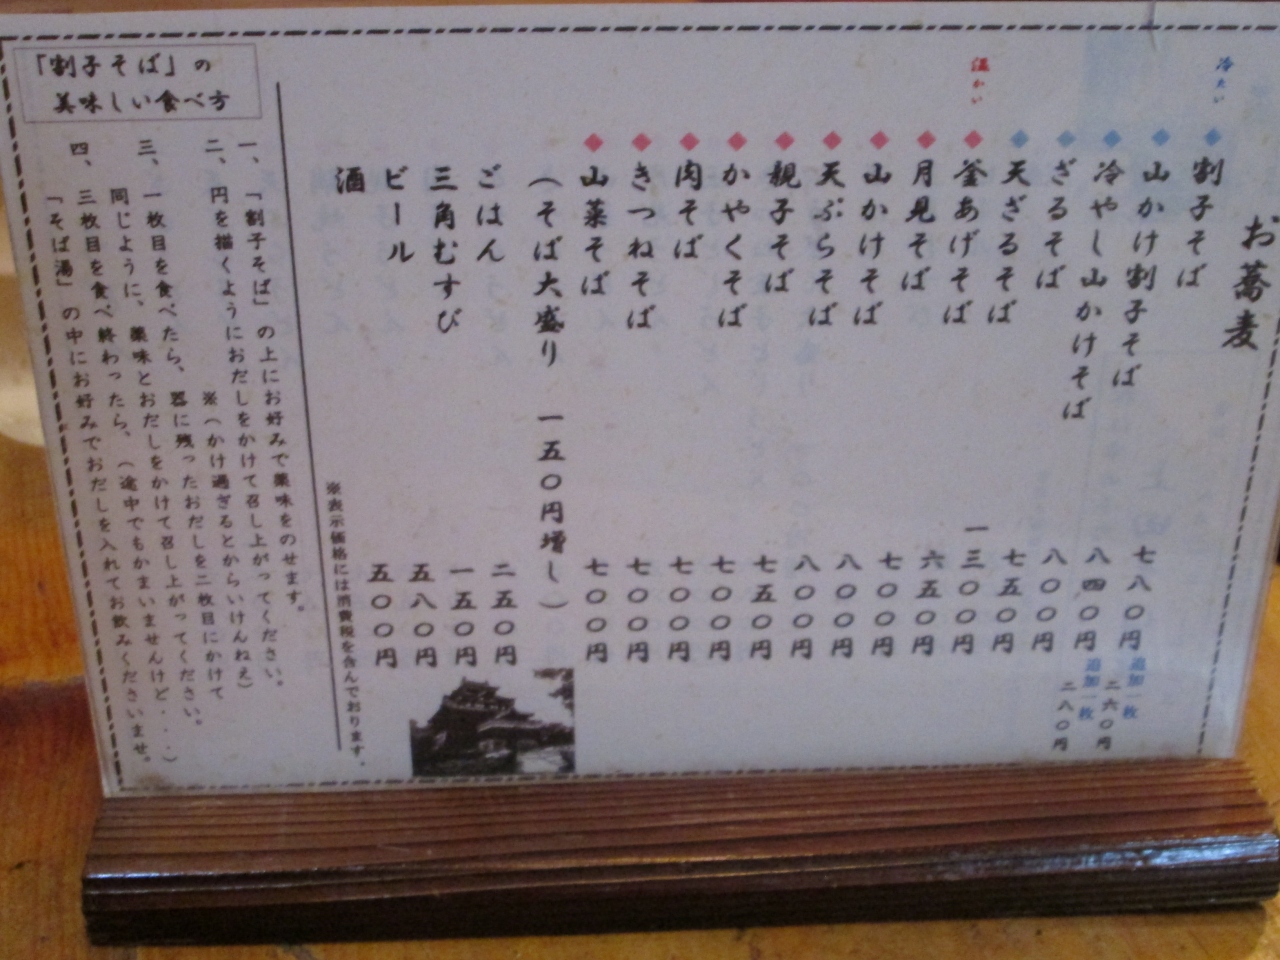 お蕎麦
冷たい
割子そば 七八〇円 追加一枚 二六〇円
山かけ割子そば 八四〇円 追加一枚 二八〇円
冷やし山かけそば 八〇〇円
ざるそば 七五〇円
天ざるそば 一三〇〇円
温かい
釜あげそば 六五〇円
月見そば 七〇〇円
山かけそば 八〇〇円
天ぷらそば 八〇〇円
親子そば 七五〇円
かやくそば 七〇〇円
肉そば 七〇〇円
きつねそば 七〇〇円
山菜そば 七〇〇円
(そば大盛り 一五〇円増し)
ごはん 二五〇円
三角むすび 一五〇円
ビール 五八〇円
酒 五〇〇円
※表示価格には消費税を含んでおります。
「割子そば」の
美味しい食べ方
一、「割子そば」の上にお好みで薬味をのせます。
二、円を描くようにおだしをかけて召し上がってください。
※(かけ過ぎるとからいけんねえ)
三、一枚目を食べたら、器に残ったおだしを二枚目にかけて
同じように、薬味とおだしをかけて召し上がってください。
四、三枚目を食べ終わったら、(途中でもかまいませんけど・・・)
「そば湯」の中にお好みでおだしを入れてお飲みくださいませ。